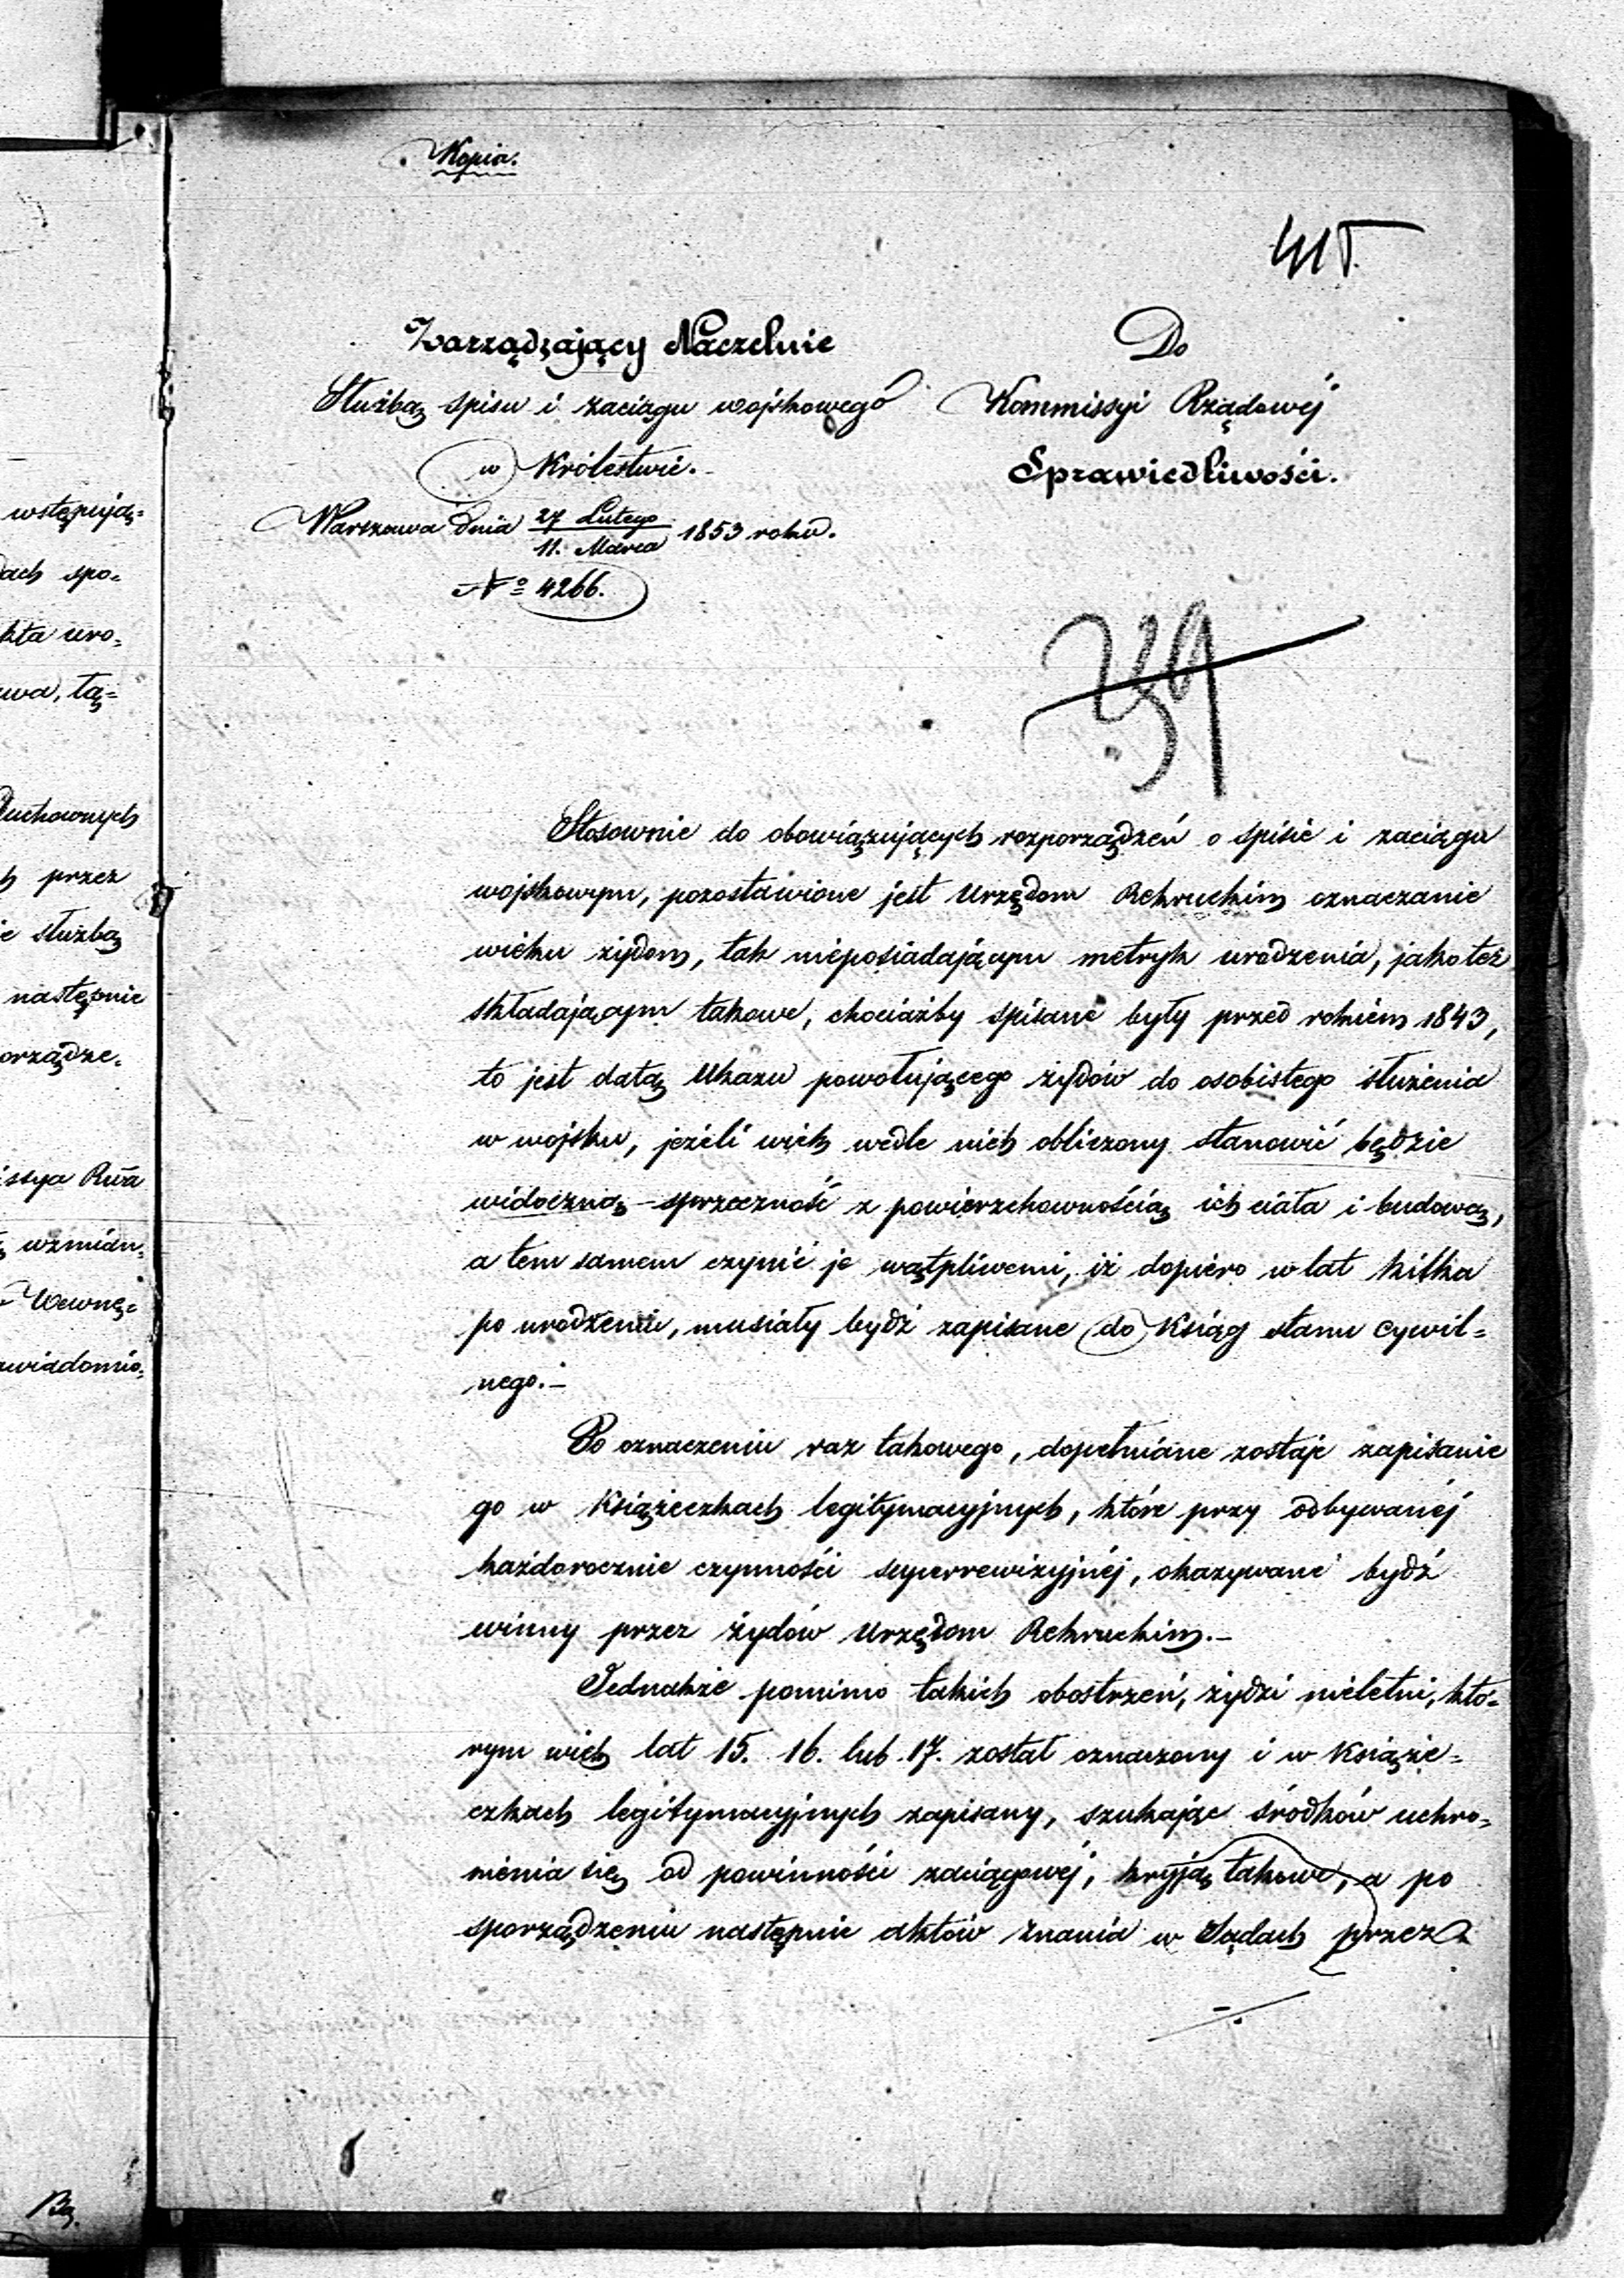 wstępują=
ach spo=
kta uro=
wa, tą=
Duchownych
przez
służbą
następnie
orządze=
issya Rwa
wzmian=
Wewnę=
awiadomio=
Kopia.
Zarządzający Naczelnie
Służbą spisu i zaciągu wojskowego
w Królestwie.
Warszawa dnia 27 Lutego / 11. Marca 1853 roku.
No 4266.
Do
Kommissyi Rządowéj
Sprawiedliwości.
Stosownie do obowiązujących rozporządzeń o spisie i zaciągu
wojskowym, pozostawione jest Urzędom Rekruckim oznaczanie
wieku żydom, tak nieposiadającym metryk urodzenia, jakoteż
składającym takowe, chociażby spisane były przed rokiem 1843,
to jest datą Ukazu powołującego żydów do osobistego służenia
w wojsku, jeżeli wiek wedle nich obliczony stanowić będzie
widoczną sprzeczność z powierzchownością ich ciała i budową,
a tem samem czynić je wątpliwemi, iż dopiero w lat kilka
po urodzeniu, musiały bydź zapisane do Ksiąg stanu cywil=
nego.-
Po oznaczeniu raz takowego, dopełniane zostaje zapisanie
go w Książeczkach legitymacyjnych, które przy odbywanéj
każdorocznie czynności superrewizyjnéj, okazywane bydź
winny przez żydów Urzędom Rekruckim.-
Jednakże pomimo takich obostrzeń, żydzi nieletni, któ=
rym wiek lat 15. 16. lub 17. został oznaczony i w Książe=
czkach legitymacyjnych zapisany, szukając środków uchro=
nienia się od powinności zaciągowéj, kryją takowe, a po
sporządzeniu następnie aktów znania w Sądach przez